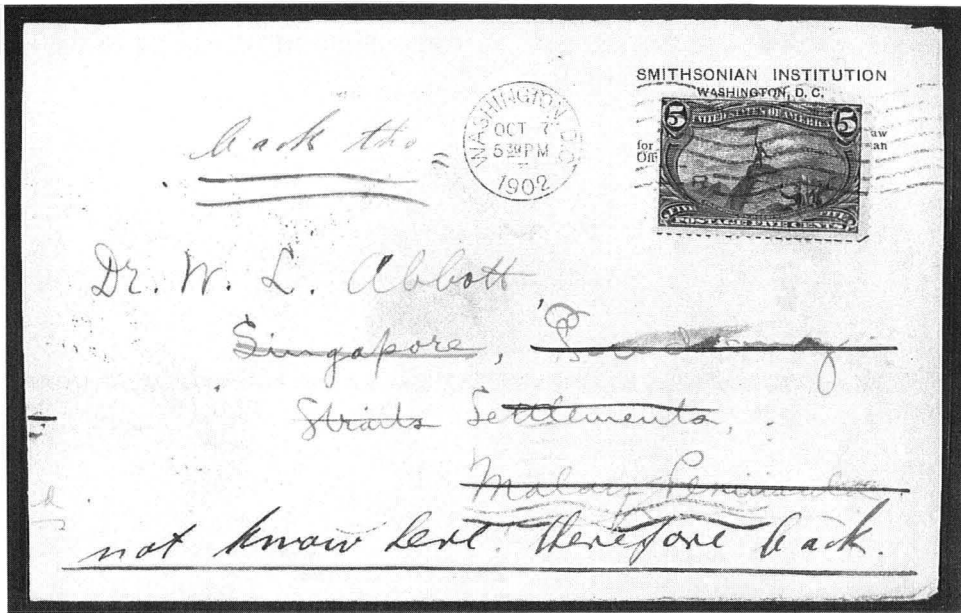 SMITHSONIAN INSTITUTION
WASHINGTON, D. C.
for
aw
an
WASHINGTON, D.C.
OCT 7
5 30 PM
1902
5 UNITED STATES OF AMERICA 5
POSTAGE FIVE CENTS
back
Dr. W. L. Abbott
Singapore,
Straits Settlements,
Malay Peninsula
not know here. therefore back.